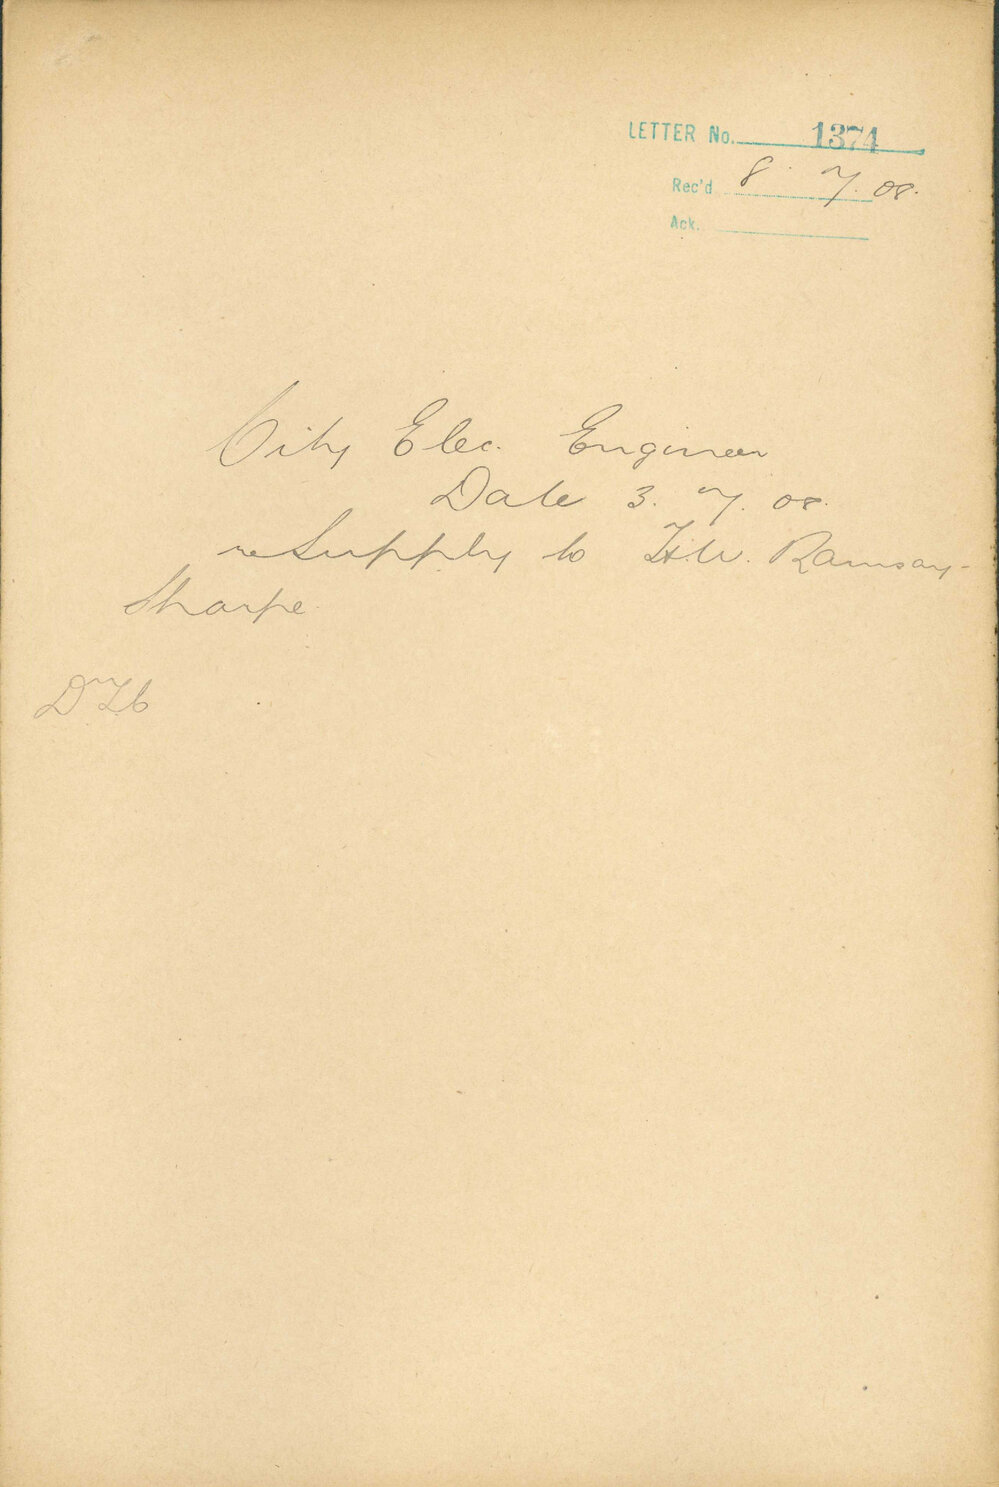 LETTER No. 1374
Rec'd 8. 7. 08.
Ack.
City Elec. Engineer
Date 3. 7. 08.
re Supply to H.W. Ramsay-
Sharpe